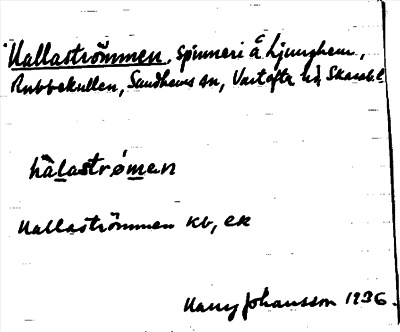 Hallaströmmen, spinneri å Ljunghem,
Rubbekullen, Sandhems sn, Vartofta hd, Skarab. l.
hàlaströmen
Hallaströmmen kb, ek
Harry Johansson 1936.